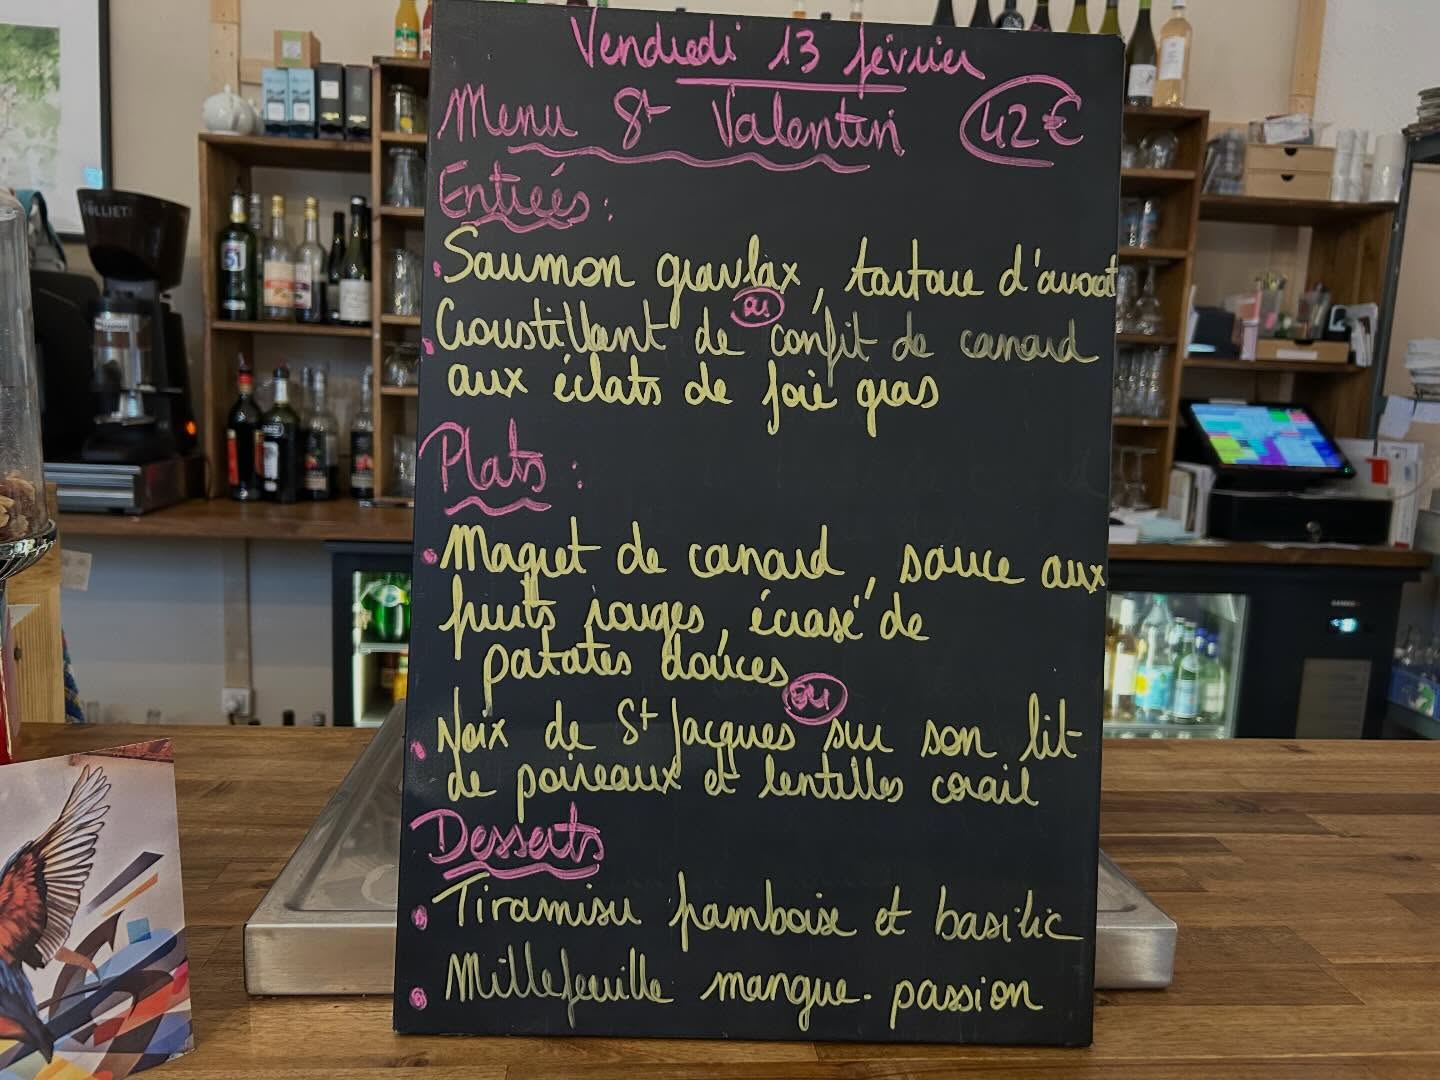 Vendredi 13 février
Menu St Valentin 42€
Entrées :
Saumon gravlax, tartare d'avocat
ou
Croustillant de confit de canard
aux éclats de foie gras
Plats :
Magret de canard, sauce aux
fruits rouges, écrasé de
patates douces
ou
Noix de St Jacques sur son lit
de poireaux et lentilles corail
Desserts
Tiramisu framboise et basilic
Millefeuille mangue-passion